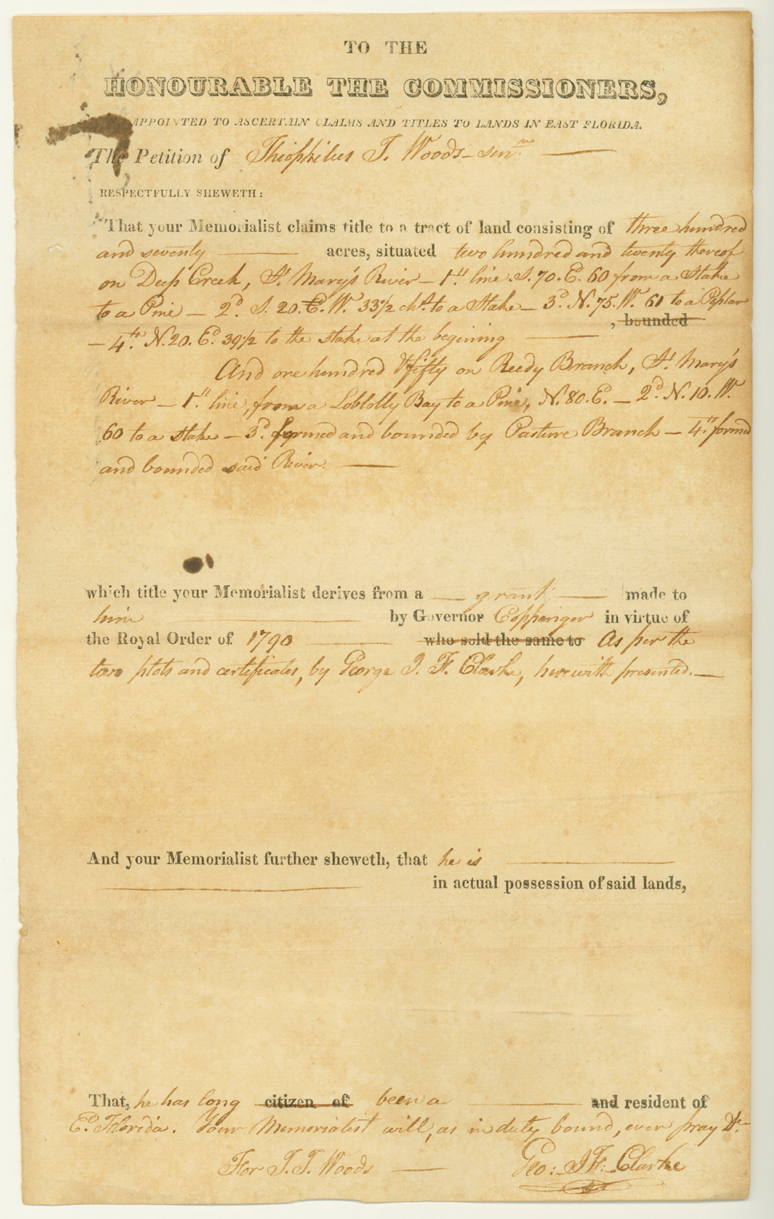 TO THE
HONOURABLE THE COMMISSIONERS,
APPOINTED TO ASCERTAIN CLAIMS AND TITLES TO LANDS IN EAST FLORIDA.
The Petition of Theophilus J. Woods - senr. —
RESPECTFULLY SHEWETH:
That your Memorialist claims title to a tract of land consisting of three hundred
and seventy — acres, situated two hundred and twenty thereof
on Deep Creek, St. Mary's River — 1st line S. 70. E. 60 from a Stake
to a Pine — 2d. S. 20. E. W. 33½ chs. to a Stake — 3d. N. 75. W. 61 to a Poplar
, bounded
— 4th. N. 20. Ed. 39½ to the stake at the begining —
And one hundred & fifty on Reedy Branch, St. Mary's
River — 1st line, from a Loblolly Bay to a Pine, N. 80. E. — 2d. N. 10. W.
60 to a stake — 3d. formed and bounded by Pasture Branch — 4th formed
and bounded said River. —
which title your Memorialist derives from a — grant — made to
him — by Governor Coppinger in virtue of
the Royal Order of 1790 — who sold the same to As per the
two plots and certificates, by George J. F. Clarke, herewith presented. —
And your Memorialist further sheweth, that he is —
— in actual possession of said lands,
That, he has long citizen of been a — and resident of
Ed. Florida. Your Memorialist will, as in duty bound, ever pray &c.
For T. J. Woods — Geo: J. F. Clarke